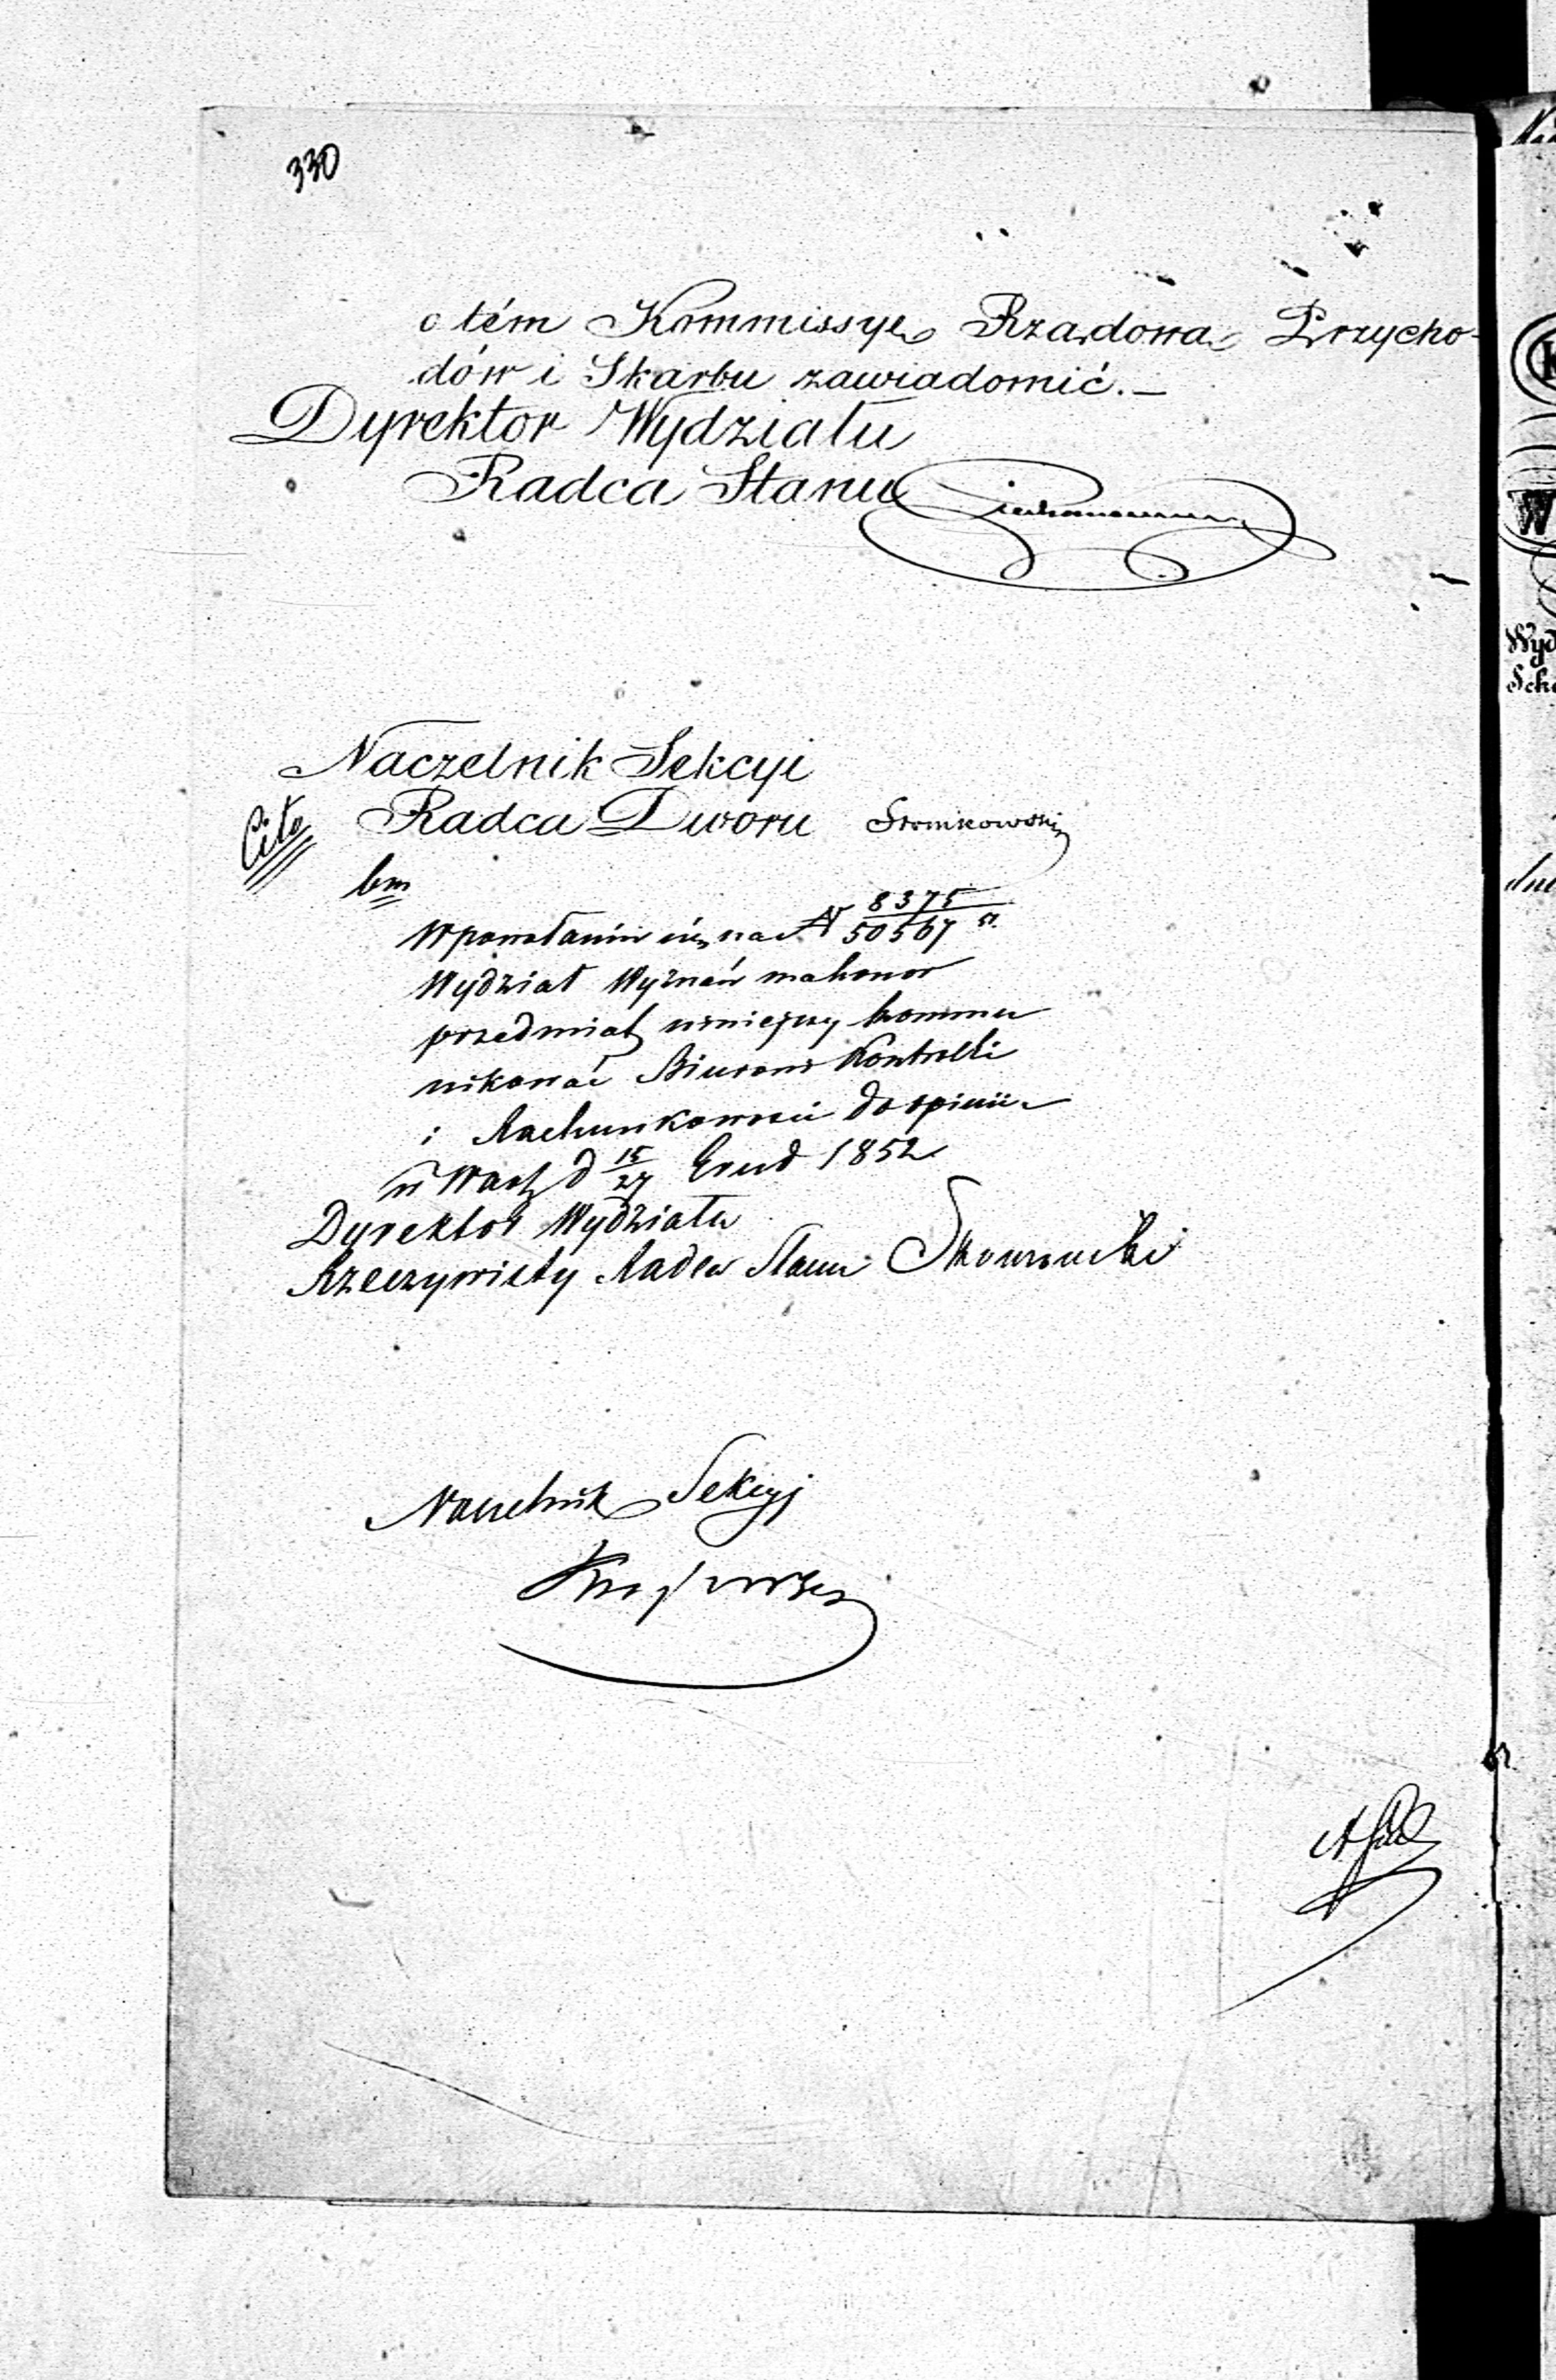 330
o tém Kommissyę Rządową Przycho-
dów i Skarbu zawiadomić.—
Dyrektor Wydziału
Radca Stanu
Naczelnik Sekcyi
Cito
Radca Dworu Słomkowski
bm
W powołaniu się na N 8375/50567 51.
Wydział Wyznań ma honor
przedmiot niniejszy kommu
nikować Biurowi Kontrolli
i Rachunkowości do opinii
w Warsz d 15/27 Grud 1852
Dyrektor Wydziału
Rzeczywisty Radca Stanu
Naczelnik Sekcyj